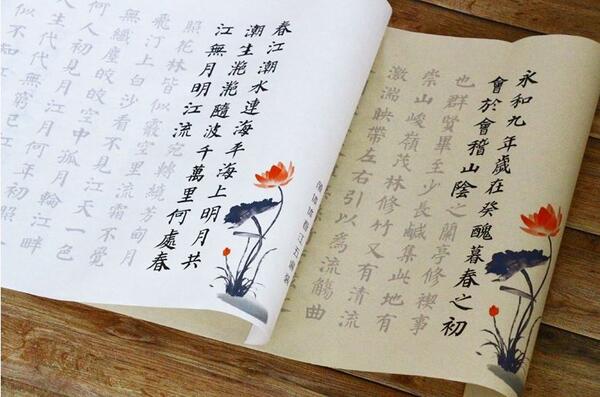 永和九年歲在癸醜暮春之初
會於會稽山陰之蘭亭修禊事
也群賢畢至少長鹹集此地有
崇山峻嶺茂林修竹又有清流
激湍映帶左右引以爲流觴曲
春江潮水連海平海上明月共
潮生灧灧隨波千萬里何處春
江無月明江流宛轉繞芳甸月
照花林皆似霰空里流霜不覺
飛汀上白沙看不見江天一色
無纖塵皎皎空中孤月輪江畔
何人初見月江月何年初照
人生代代無窮已江
似不知江